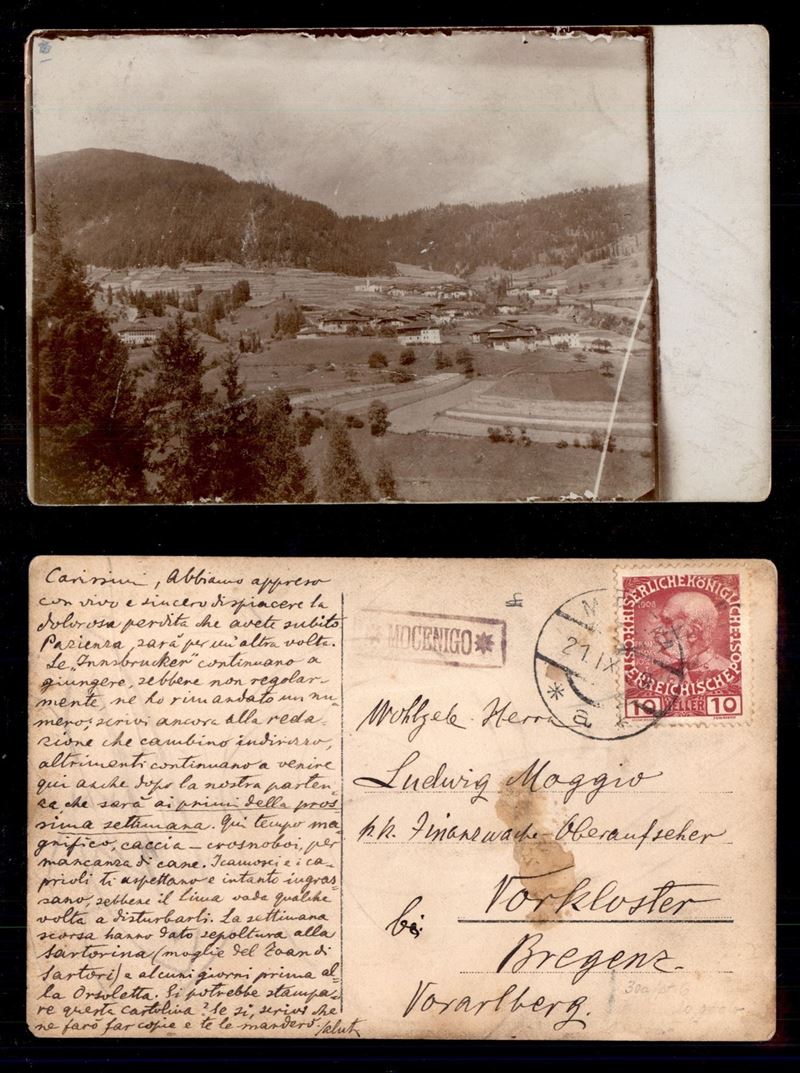 Carissimi, Abbiamo appreso
con vivo e sincero dispiacere la
dolorosa perdita che avete subito
Pazienza, sarà per un'altra volta.
Le „Innsbrucker" continuano a
giungere, sebbene non regolar-
mente, ne ho rimandato un nu-
mero; scrivi ancora alla reda-
zione che cambino indirizzo,
altrimenti continuano a venire
qui anche dopo la nostra parten-
za, che sarà ai primi della pros-
sima settimana. Qui tempo ma-
gnifico, caccia – crosnoboi, per
mancanza di cane. I camosci e i ca-
prioli ti aspettano e intanto ingras-
sano, sebbene il Tima vada qualche
volta a disturbarli. La settimana
scorsa hanno dato sepoltura alla
Sartorina (moglie del Zoan di
Sartori) e alcuni giorni prima al-
la Orsoletta. Si potrebbe stampa-
re questa cartolina? Se si, scrivi che
ne farò far copie e te le manderò. Saluti
MOCENIGO
21.IX
a
1908
KAISERLICHEKÖNIGLICHE
ÖSTERREICHISCHE
10 HELLER 10
Wohlgeb. Herrn
Ludwig Maggio
k.k. Finanzwache-Oberaufseher
Vorkloster
bei
Bregenz.
Vorarlberg.